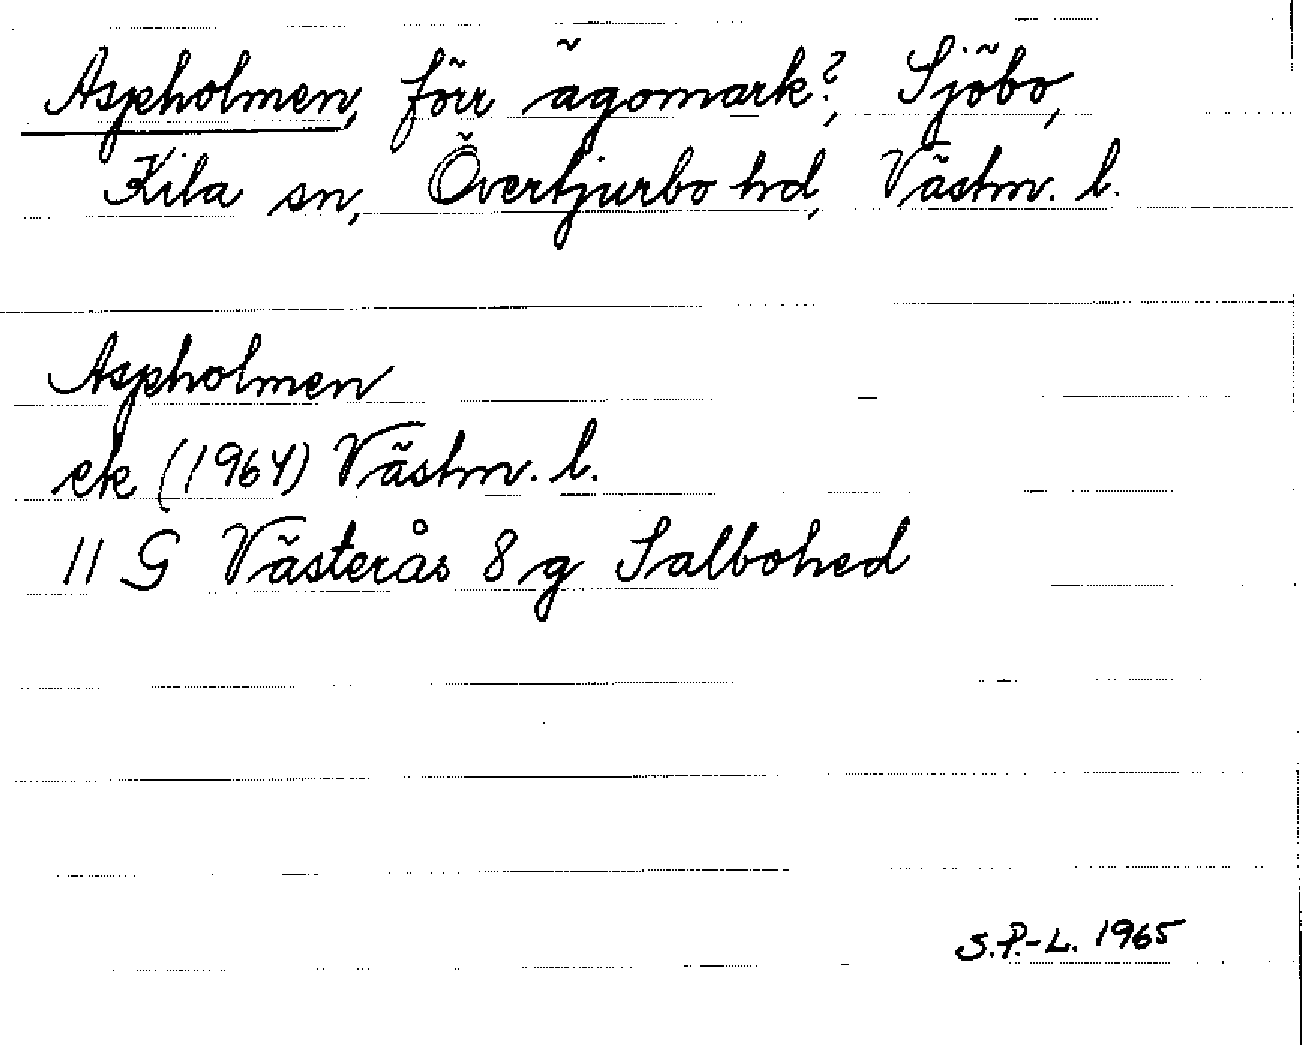 Aspholmen, förr ägomark?, Sjöbo,
Kila sn, Övertjurbo hd, Västm. l.
Aspholmen
ek (1964) Västm. l.
11 G Västerås 8 g Salbohed
S.P.-L. 1965